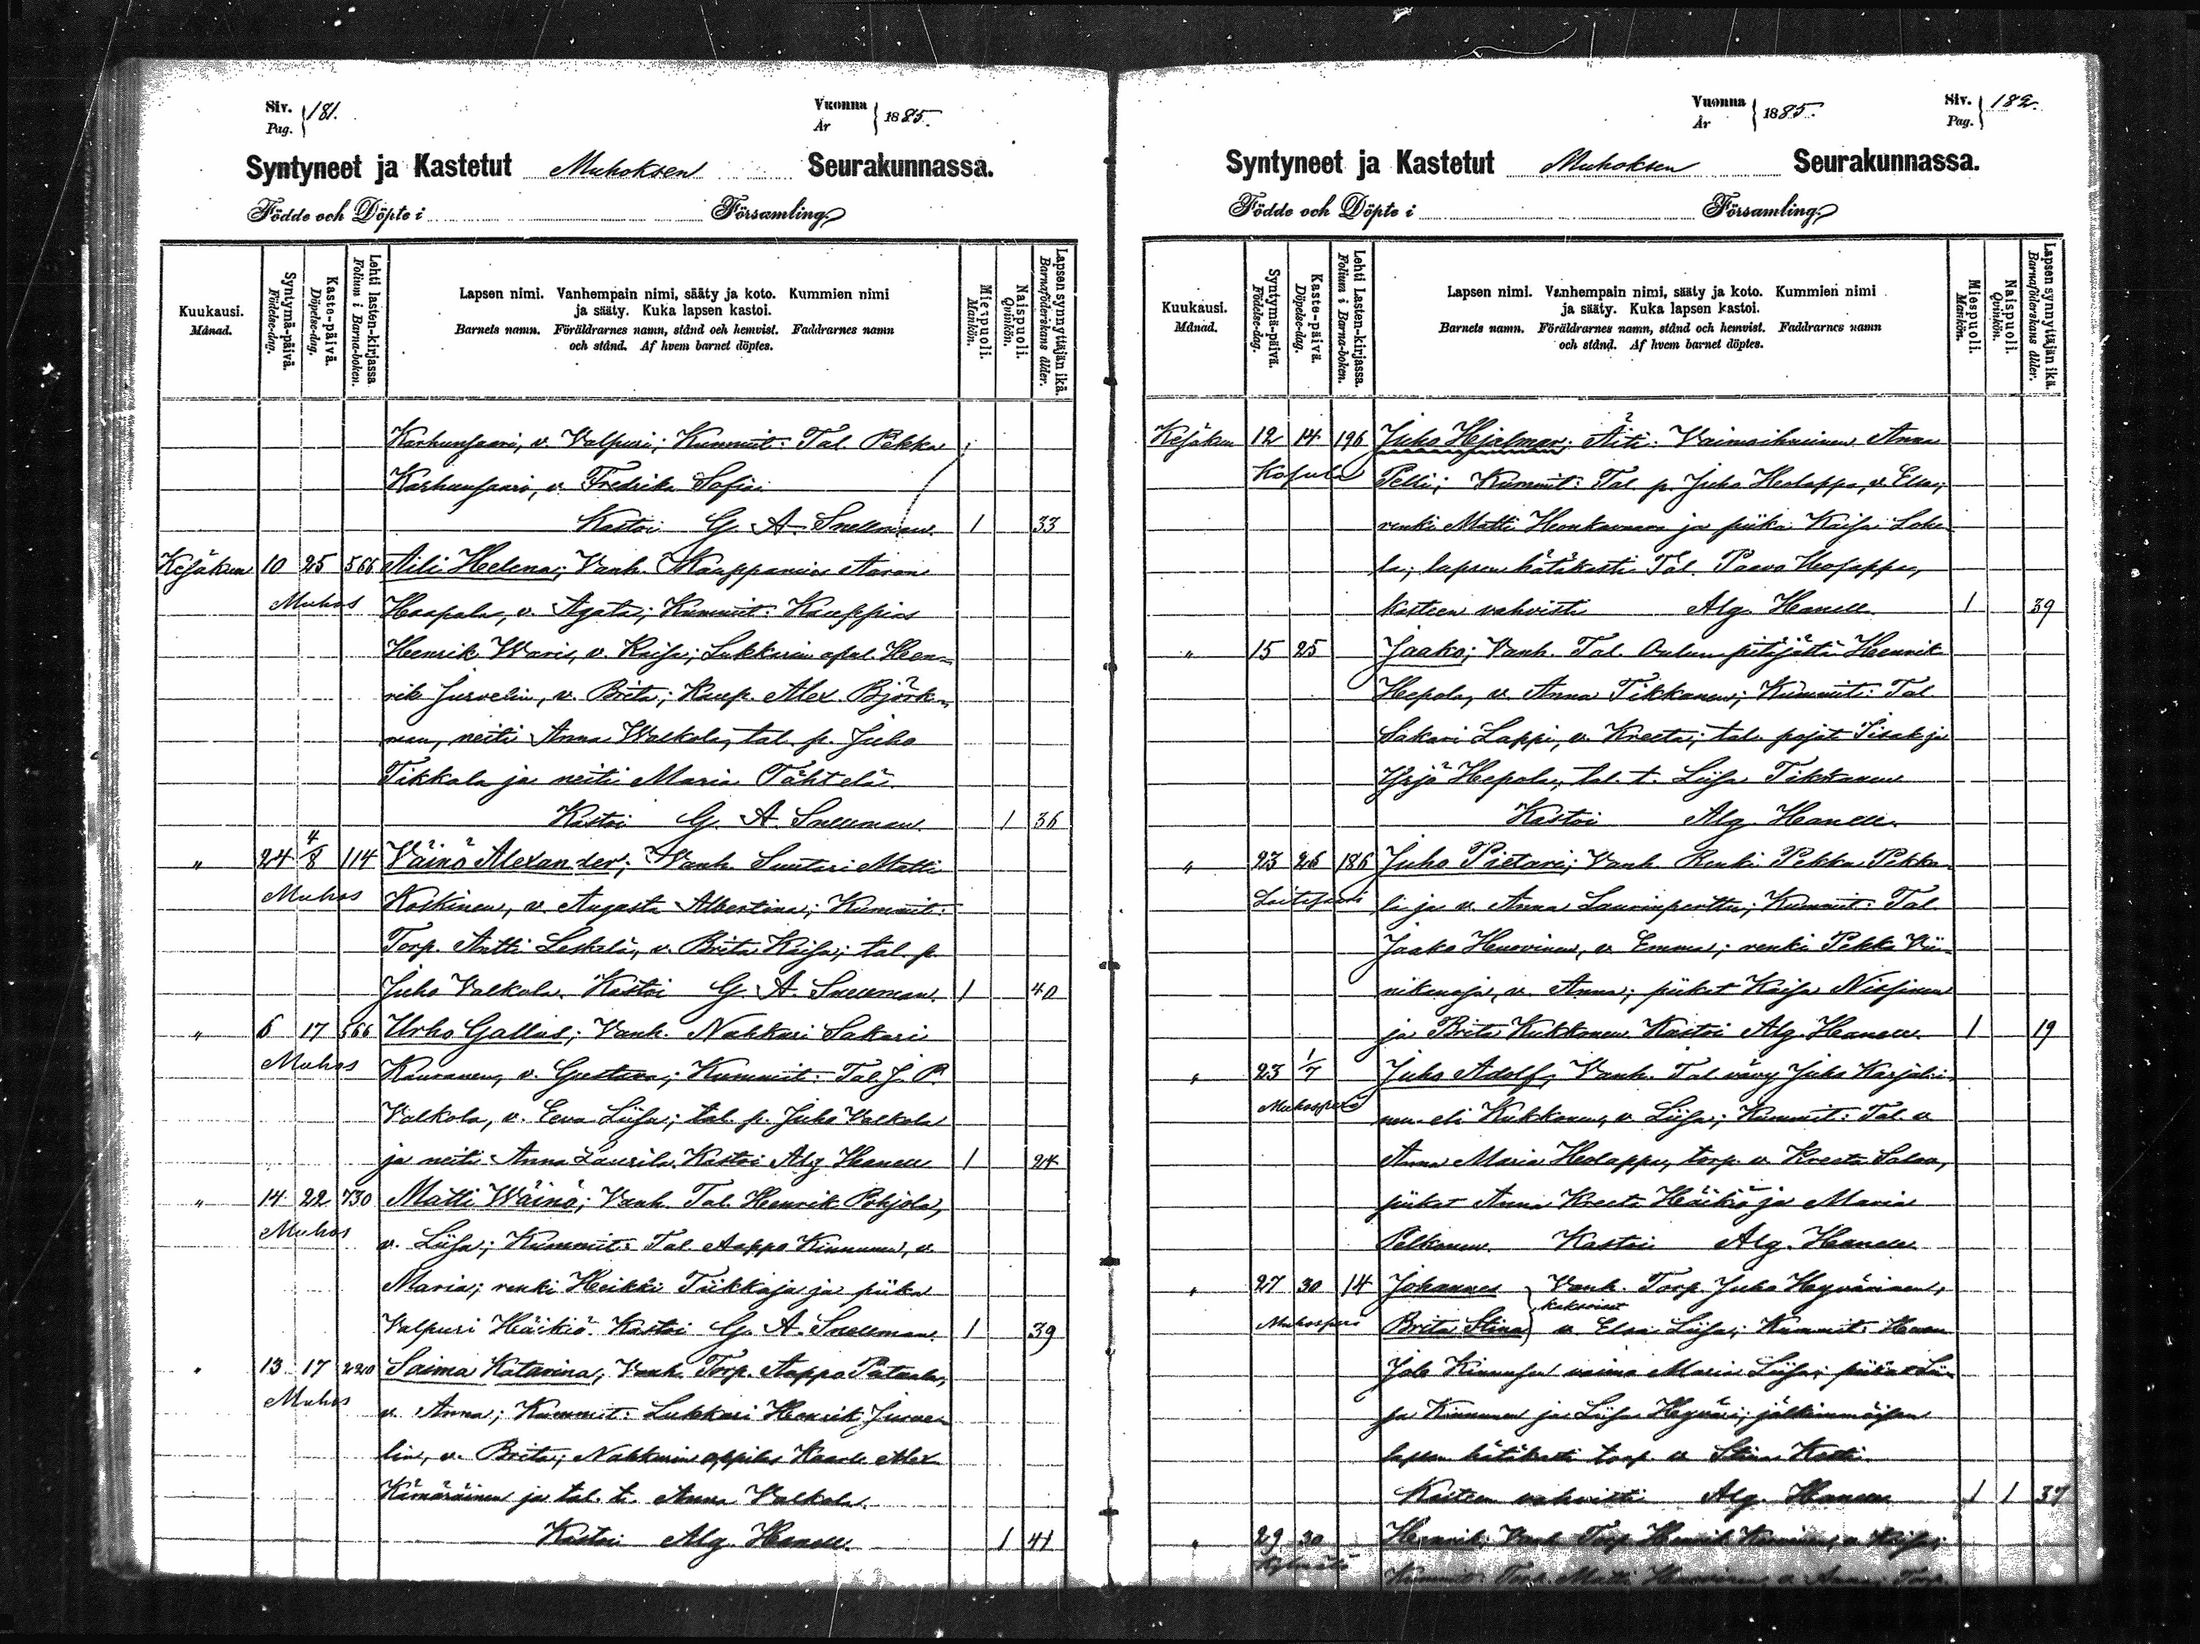 Siv. Pag. 181.
Vuonna År 1885.
Syntyneet ja Kastetut Muhoksen Seurakunnassa.
Födde och Döpte i Församling
Kuukausi. Månad.
Syntymä-päivä. Födelse-dag.
Kaste-päivä. Döpelse-dag.
Lehti lasten-kirjassa. Folium i Barna-boken.
Lapsen nimi. Vanhempain nimi, sääty ja koto. Kummien nimi
ja sääty. Kuka lapsen kastoi.
Barnets namn. Föräldrarnes namn, stånd och hemvist. Faddrarnes namn
och stånd. Af hvem barnet döptes.
Miespuoli. Mankön.
Naispuoli. Qvinkön.
Lapsen synnyttäjän ikä. Barnaföderskans ålder.
Karhunsaari, v. Valpuri; Kummit: Tal. Pekka
Karhunsaari, v. Fredrika Sofia
Kastoi G. A. Snellman. 1 33
Kesäkuu 10 25 566 Aili Helena; Vanh. Kauppanies Aaron
Muhos Haapala, v. Agata; Kummit: Kauppias
Henrik Waris, v. Kaisa; Lukkarin apul. Hen-
rik Jurvelin, v. Brita; Kaup. Alex. Björk-
man, neiti Anna Walkola, tal. p. Juho
Tikkala ja neiti Maria Tähtelä.
Kastoi G. A. Snellman 1 36
„ 24 4/8 114 Väinö Alexander; Vanh. Suutari Matti
Muhos Koskinen, v. Augusta Albertina; Kummit:
Torp. Antti Leskelä, v. Brita Kaisa; tal. p.
Juho Valkola. Kastoi G. A. Snellman. 1 40
„ 6 17 566 Urho Gallus; Vanh. Nahkuri Sakari
Muhos Kauranen, v. Gustava; Kummit: Tal. J. P.
Valkola, v. Eeva Liisa; tal. p. Juho Valkola
ja neiti Anna Laurila. Kastoi Alg. Hanell 1 24
„ 14 22 730 Matti Wäinö; Vanh. Tal. Henrik Pohjola,
Muhos v. Liisa; Kummit: Tal. Aappo Kinnunen, v.
Maria; renki Heikki Tiikkaja ja piika
Valpuri Häikiö. Kastoi G. A. Snellman. 1 39
„ 13 17 220 Saima Katarina; Vanh. Torp. Aappo
Muhos v. Anna; Kummit: Lukkari Henrik Jurve-
lin, v. Brita; Nahkurin oppilas Kaarle Alex.
Kämäräinen ja tal. t. Anna Valkola.
Kastoi Alg. Hanell. 1 41
Vuonna År 1885.
Siv. Pag. 182.
Syntyneet ja Kastetut Muhoksen Seurakunnassa.
Födde och Döpte i Församling
Kuukausi. Månad.
Syntymä-päivä. Födelse-dag.
Kaste-päivä. Döpelse-dag.
Lehti Lasten-kirjassa. Folium i Barna-boken.
Lapsen nimi. Vanhempain nimi, sääty ja koto. Kummien nimi
ja sääty. Kuka lapsen kastoi.
Barnets namn. Föräldrarnes namn, stånd och hemvist. Faddrarnes namn
och stånd. Af hvem barnet döptes.
Miespuoli. Mankön.
Naispuoli. Qvinkön.
Lapsen synnyttäjän ikä. Barnaföderskans ålder.
Kesäkuu 12 14 196 Juho Hjalmar; Äiti: Vaimoihminen Anna
Pelli; Kummit: Tal. p. Juho Holappa, v. Elsa;
renki Matti Honkavaara ja piika Kaisa Lohe-
la; lapsen hätäkasti Tal. Paavo Holappa,
kasteen vahvisti Alg. Hanell. 1 39
„ 15 25 Jaako; Vanh. Tal. Oulun pitäjästä Henrik
Hepola, v. Anna Tikkanen; Kummit: Tal.
Sakari Lappi, v. Kreeta; tal. pojat Iisak ja
Yrjö Hepola, tal. t. Liisa Tikkanen
Kastoi Alg. Hanell.
„ 23 26 186 Juho Pietari; Vanh. Renki Pekka Pekka-
la ja v. Anna Laurinperttu; Kummit: Tal.
Jaako Huovinen, v. Emma; renki Pekka Vii-
nikanoja, v. Anna; piikat Kaisa Nissinen
ja Brita Kukkonen. Kastoi Alg. Hanell. 1 19
„ 23 1/7 Juho Adolf; Vanh. Tal. vävy Juho Karjalai-
Muhosperä nen eli Kukkonen, v. Liisa; Kummit: Tal. v.
Anna Maria Holappa, torp. v. Kreeta Saloa,
piikat Anna Kreeta Häikiö ja Maria
Pelkonen. Kastoi Alg. Hanell
„ 27 30 14 Johannes Vanh. Torp. Juho Hyvärinen,
kaksoiset
Muhosperä Brita Stina v. Elsa Liisa; Kummit:
Job Kinnusen vaimo Maria Liisa; piikat Lii-
sa Kinnunen ja Liisa Hyväri; jälkimmäisen
lapsen hätäkasti torp. v. Stina
Kasteen vahvisti Alg. Hanell 1 1 37
„ 29 30 Henrik; Vanh. Torp. Henrik v. Kaisa;
Kummit: Torp. Matti Huovinen, v. Anna; Torp.